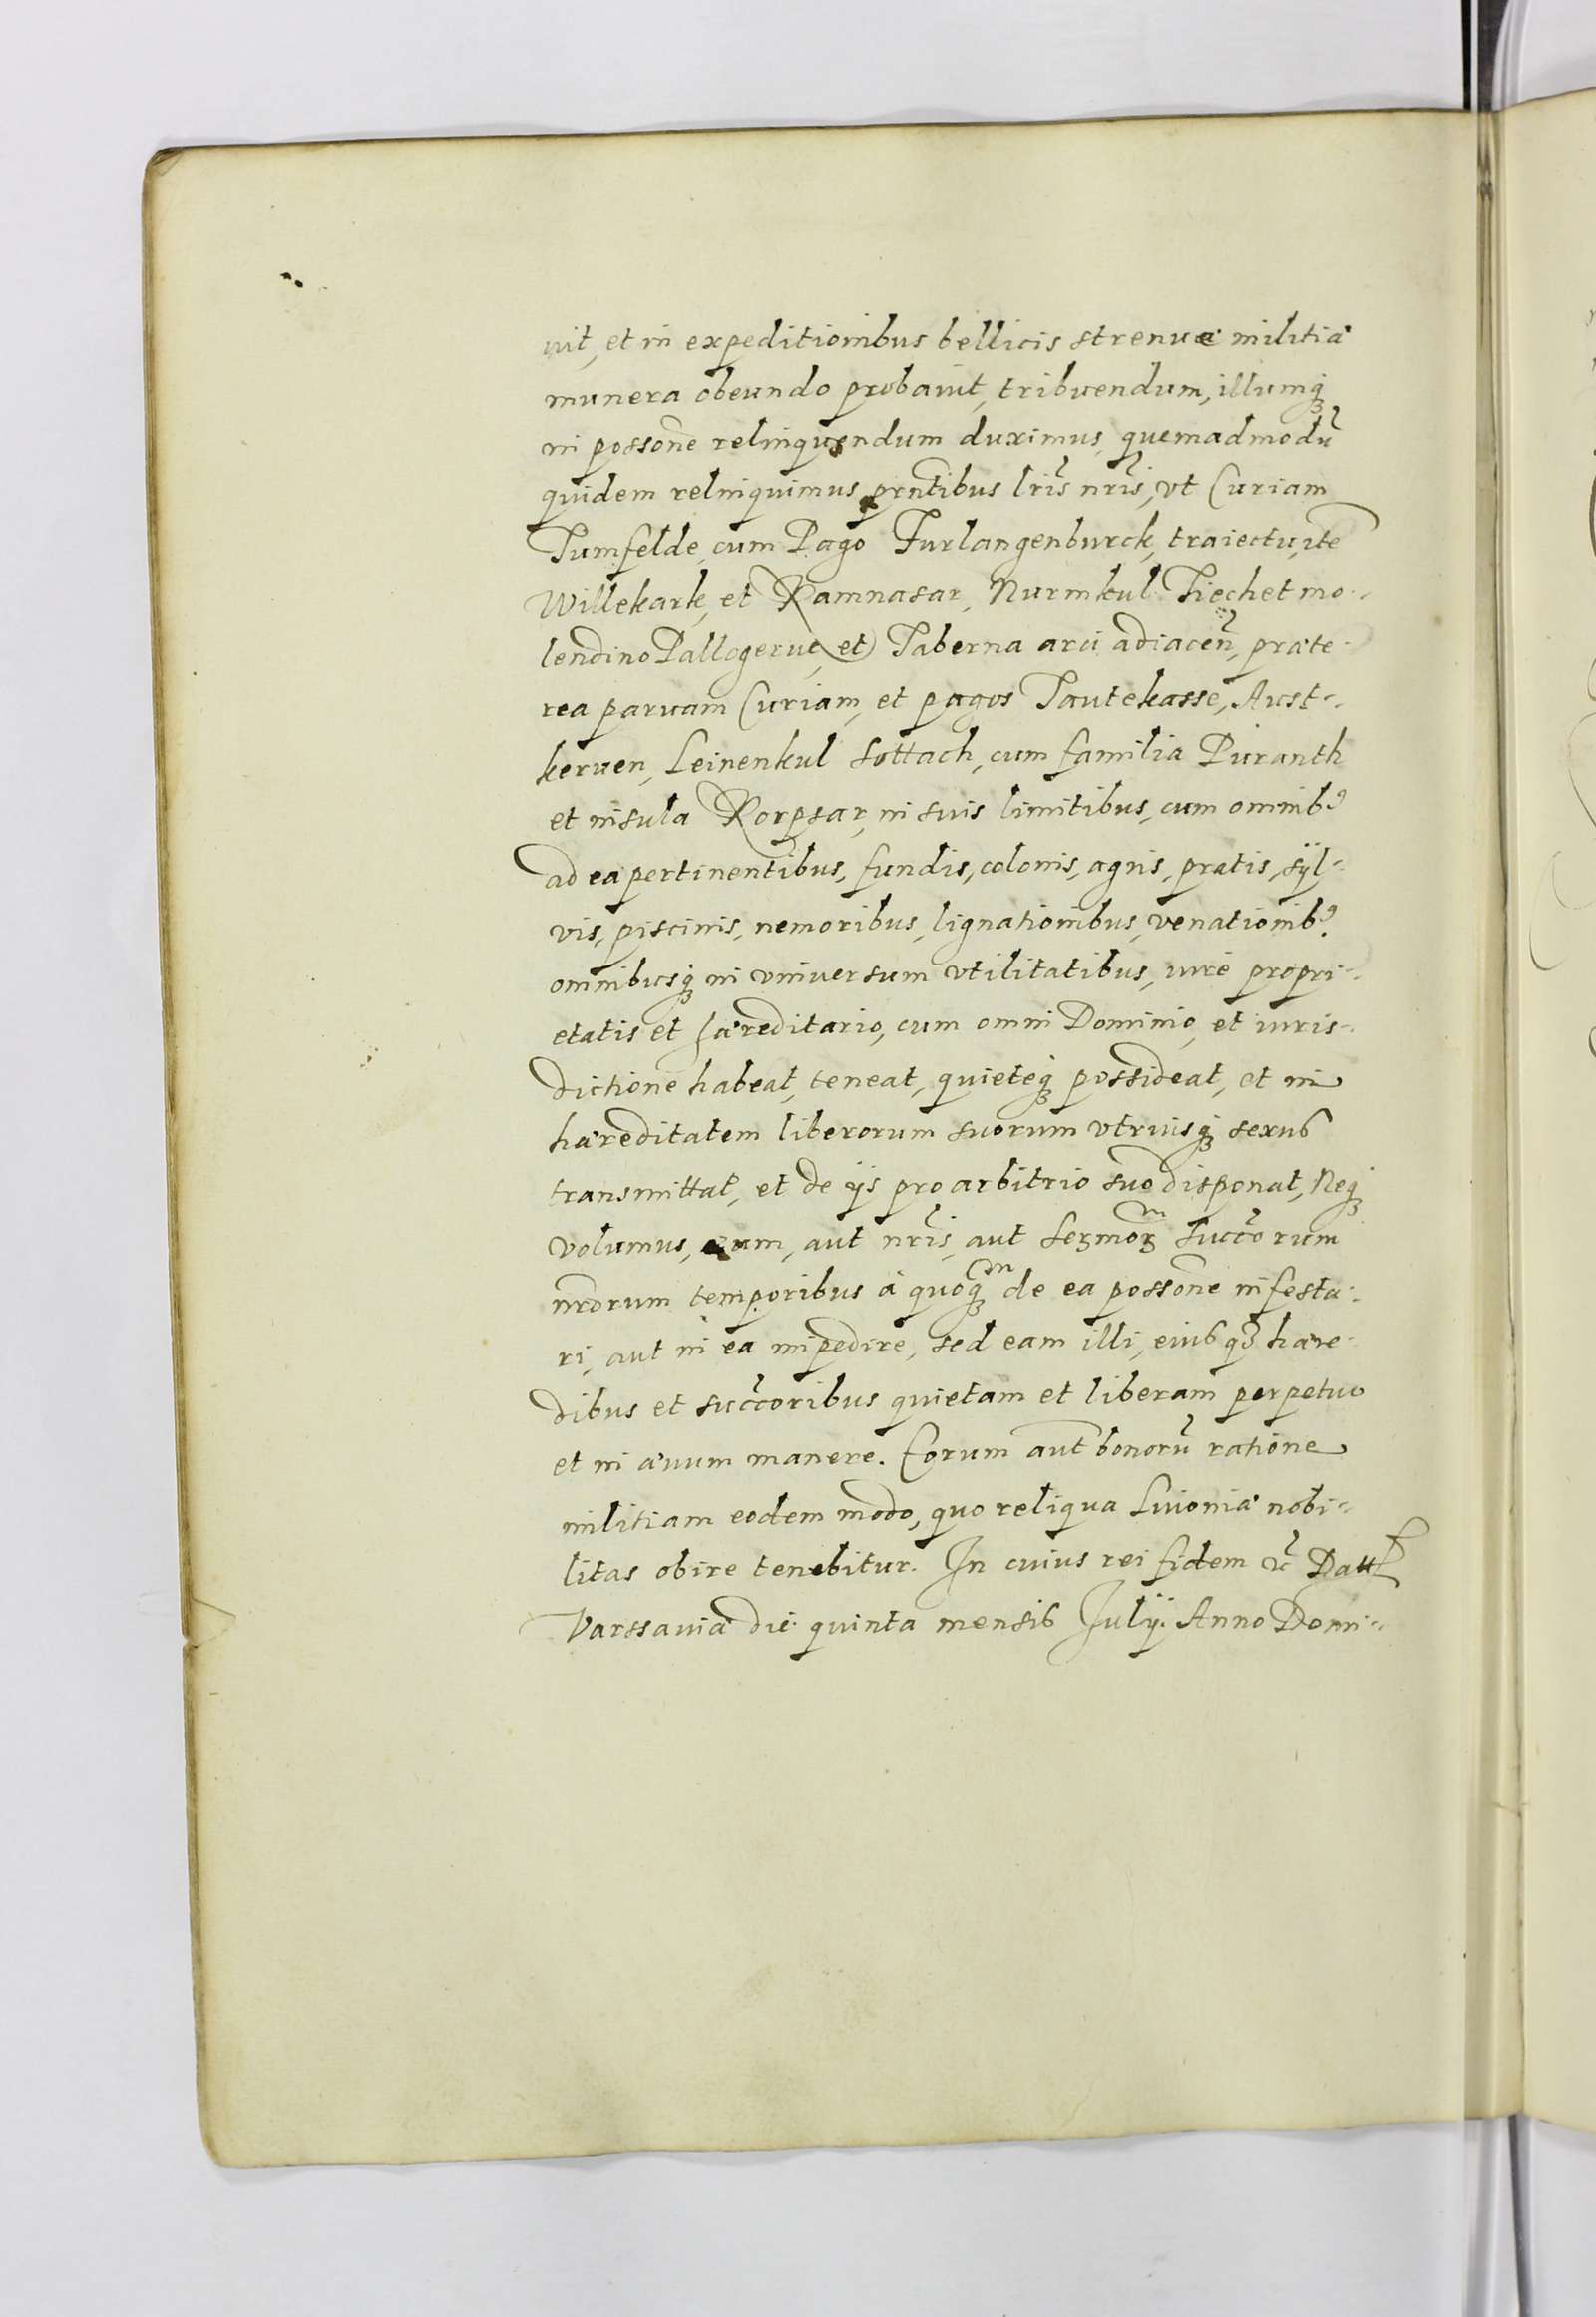 uit, et in expeditionibus bellicis strenue militiæ
munera obeundo probauit, tribuendum, illumqꜗ
in possone relinquendum duximus, quemadmodū
quidem relinquimus prntibus lris nris, vt Curiam
Tumfelde, cum Pago Furlangenburck, traiectu, ite
Willekark, et Ramnasar, Nurmkul Tiechet mo-
lendino Pallogerue, et Taberna arci adiacen, præte-
rea paruam Curiam, et pagos Tautekasse, Aust-
keruen, Leinenkul Sottach, cum familia Puranth
et insula Korpsar, in suis limitibus, cum omnibꝰ
ad ea pertinentibus, fundis, colonis, agris, pratis, syl-
vis, piscinis, nemoribus, lignationibus, venationibꝰ
omnibusqꜗ in vniuersum vtilitatibus, iure propri-
etatis et hæreditario, cum omni Dominio, et iuris-
dictione habeat, teneat, quieteqꜗ possideat, et in
hæreditatem liberorum suorum vtriusqꜗ sexus
transmittat, et de ijs pro arbitrio suo disponat, Neqꜗ
volumus, eum, aut nris, aut Sermor succorum
nrorum temporibus à quoq de ea possone infesta-
ri, aut in ea impedire, sed eam illi, eiusqꜗ hære-
dibus et succoribus quietam et liberam perpetuo
et in æuum manere. Eorum aut bonorū ratione
militiam eodem modo, quo reliqua Liuoniæ nobi-
litas obire tenebitur. In cuius rei fidem &c Datt
Varssauiæ die quinta mensis Julij. Anno Domi-